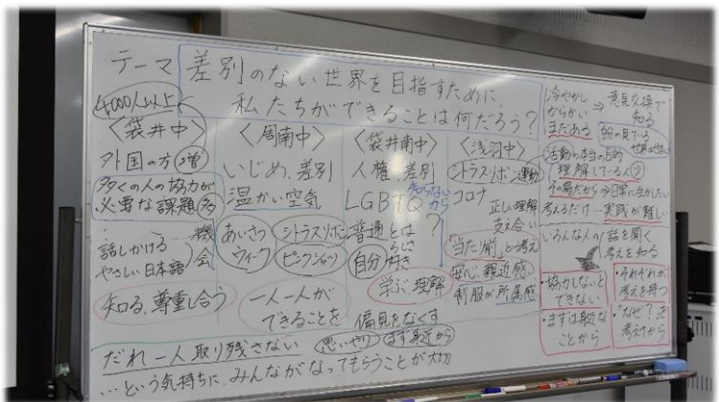 テーマ 差別のない世界を目指すために、
私たちができることは何だろう?
4000人以上
〈袋井中〉
外国の方 増
多くの人の協力が
必要な課題 多
話しかける
やさしい日本語
機会
知る、尊重し合う
〈周南中〉
いじめ、差別
温かい空気
あいさつ
ウィーク
シトラスリボン
ピンクシャツ
一人一人が
できることを
〈袋井南中〉
人権、差別
LGBTQ
知らない
から
?
普通とは
自分らしさ
好き
学ぶ、理解
偏見をなくす
〈浅羽中〉
シトラスリボン運動
コロナ
正しい理解
支え合い
「当たり前」の考え
安心、親近感
制服が所属感
だれ一人取り残さない
思いやり
まず身近から
…という気持ちに、みんながなってもらうことが大切
冷やかし
からかい
まだある
⇒ 意見交換で
知る
活動の本当の目的
理解している人 少
その場だから→日常に生かしたい
考えるだけ…実践が難しい
いろんな人の話を聞く
考えを知る
・協力しないと
できない
・まずは身近な
ことから
・それぞれが
考えを持つ
・「なぜ?」を
考えてから